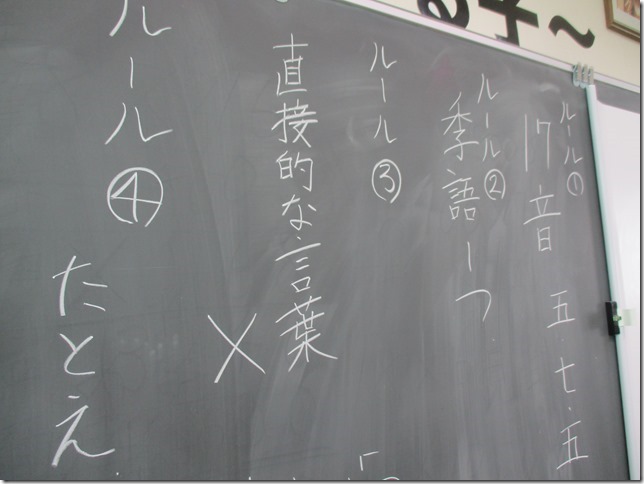 る子～
ルール①
17音 五・七・五
ルール②
季語一つ
ルール③
直接的な言葉
×
ルール④
たとえ